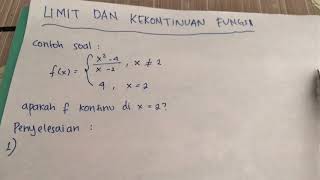 LIMIT DAN KEKONTINUAN FUNGSI
Contoh soal :
f(x) = { x² - 4 / x - 2 , x ≠ 2
4 , x = 2
apakah f kontinu di x = 2?
Penyelesaian :
1)